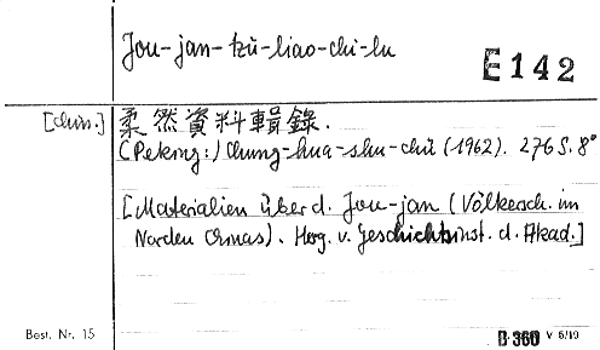 Jou-jan-tzŭ-liao-chi-lu
E 142
[chin.] 柔然資料輯錄.
(Peking:) Chung-hua-shu-chü (1962). 276 S. 8°
[Materialien über d. Jou-jan (Völkersch. im
Norden Chinas). Hrsg. v. Geschichtsinst. d. Akad.]
Best. Nr. 15
D 360 V 5/19